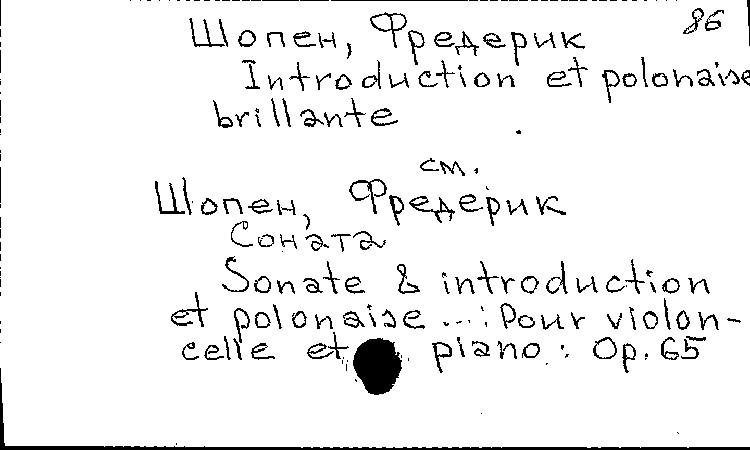 86
Шопен, Фредерик
Introduction et polonaise
brillante
см.
Шопен, Фредерик
Соната
Sonate & introduction
et polonaise ...: Pour violon-
celle et piano : Op. 65